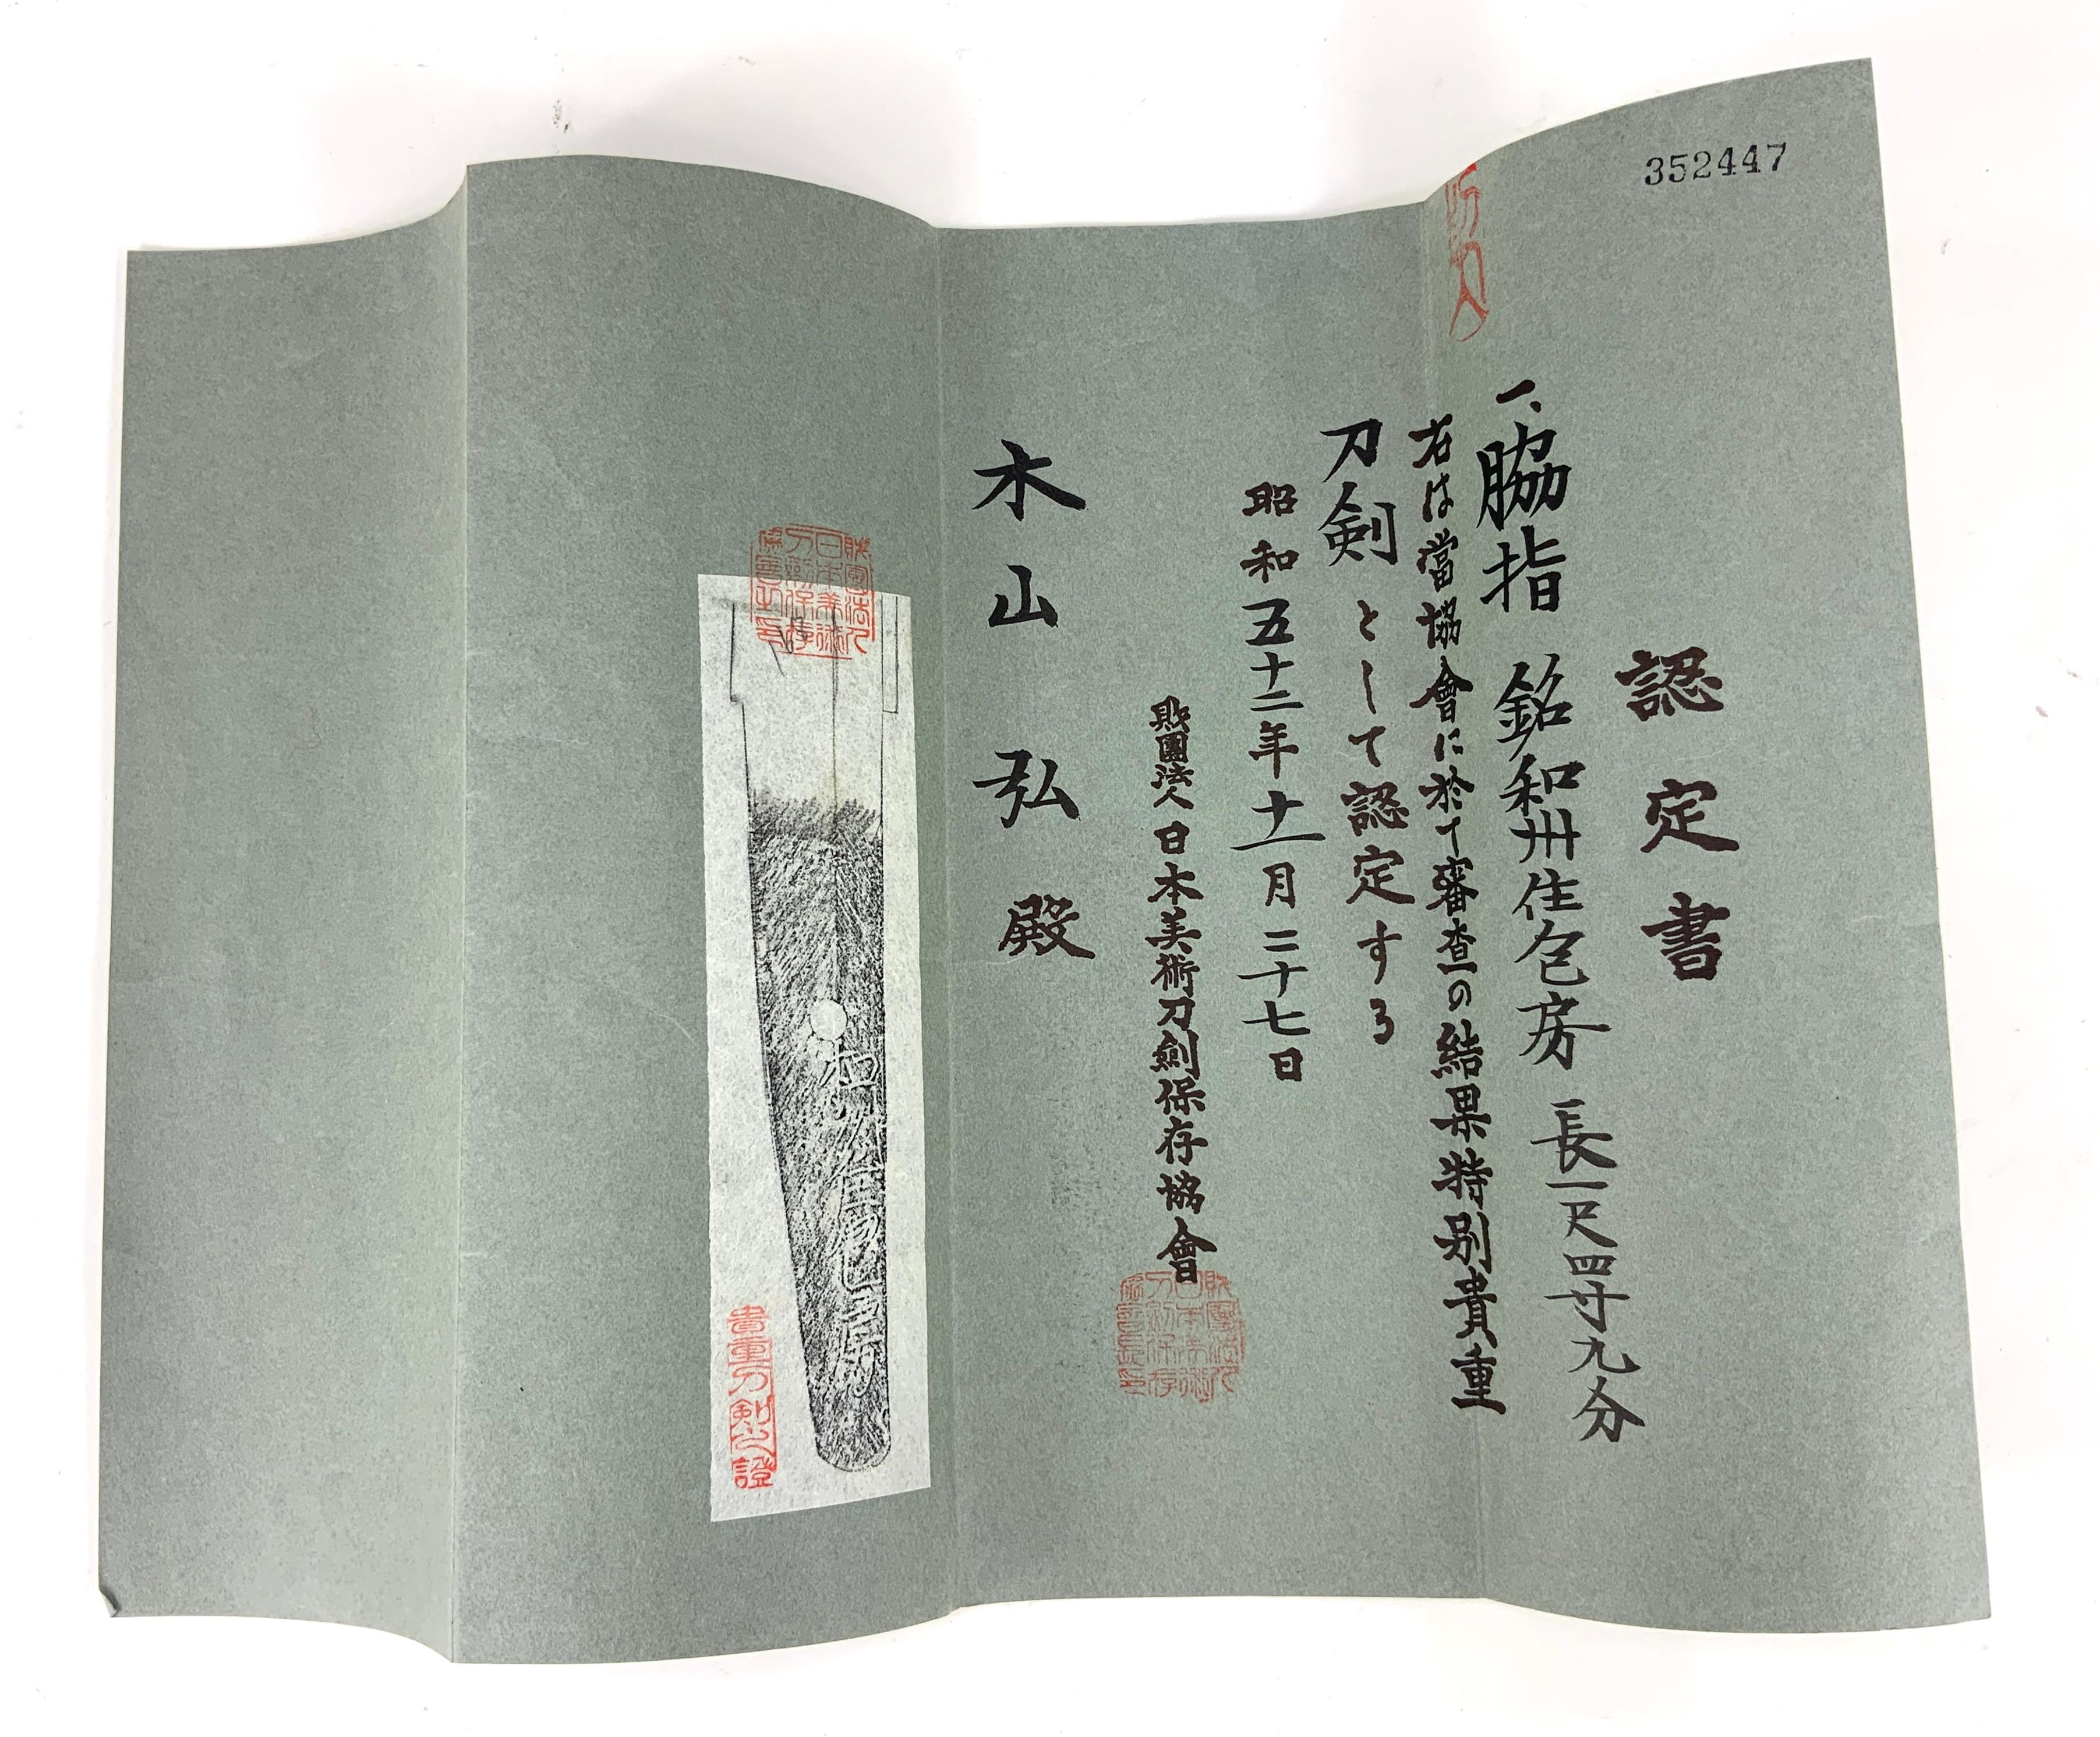 352447
認定書
一、脇指 銘和州住包房 長一尺四寸九分
右は當協會に於て審査の結果特別貴重
刀剣として認定する
昭和五十二年十一月二十七日
財團法人日本美術刀劍保存協會
木山弘殿
和州住包房
貴重刀剣之證